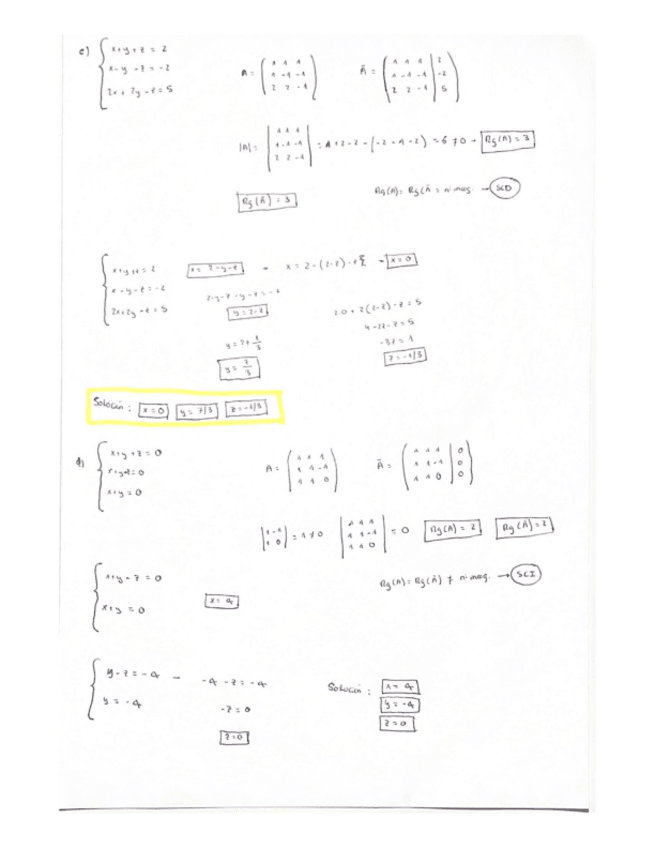 c) { x+y+z = 2
x-y-z = -2
2x+2y-z = 5
A = ( 1 1 1
1 -1 -1
2 2 -1 )
Ā = ( 1 1 1 | 2
1 -1 -1 | -2
2 2 -1 | 5 )
|A| = | 1 1 1
1 -1 -1
2 2 -1 | = 1+2-2-(-2-1-2) = 6 ≠ 0 → Rg(A) = 3
Rg(Ā) = 3
Rg(A) = Rg(Ā = nºincg. → SCD
{ x+y+z = 2
x-y-z = -2
2x+2y-z = 5
x = 2-y-z → x = 2-(2-z)-z → x = 0
2-y-z-y-z = -2
y = 2-z
y = 2+ 1/3
y = 7/3
2·0+2(2-z)-z = 5
4-2z-z = 5
-3z = 1
z = -1/3
Solución : x = 0 y = 7/3 z = -1/3
d) { x+y+z = 0
x+y-z = 0
x+y = 0
A = ( 1 1 1
1 1 -1
1 1 0 )
Ā = ( 1 1 1 | 0
1 1 -1 | 0
1 1 0 | 0 )
| 1 -1
1 0 | = 1 ≠ 0 | 1 1 1
1 1 -1
1 1 0 | = 0 Rg(A) = 2 Rg(Ā) = 2
Rg(A) = Rg(Ā) ≠ nºincg. → SCI
{ x+y-z = 0
x+y = 0
x = α
{ y-z = -α → -α-z = -α
y = -α
-z = 0
z = 0
Solución : x = α
y = -α
z = 0